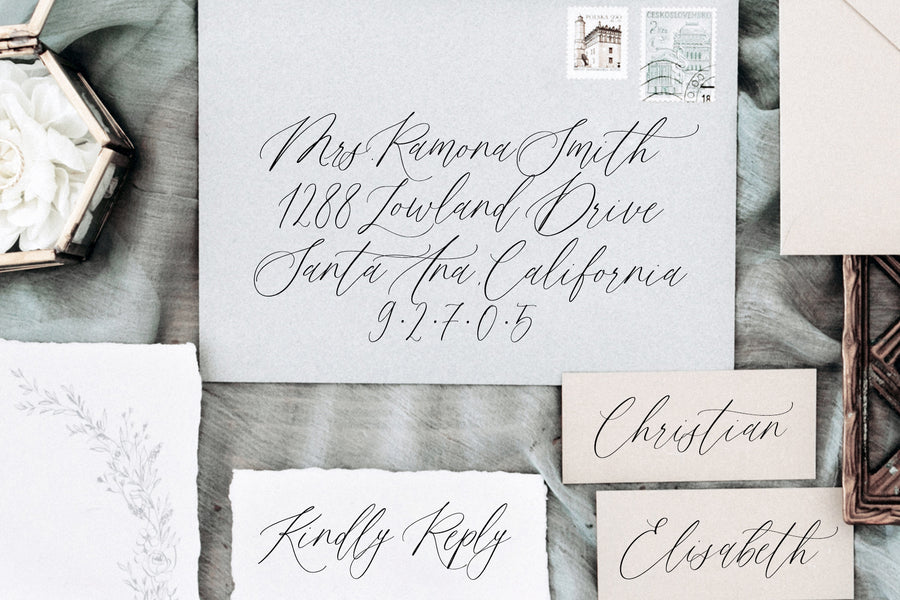 POLSKA 5,90
ČESKOSLOVENSKO
18
Mrs. Ramona Smith
1288 Lowland Drive
Santa Ana, California
9·2·7·0·5
Christian
Kindly Reply
Elisabeth